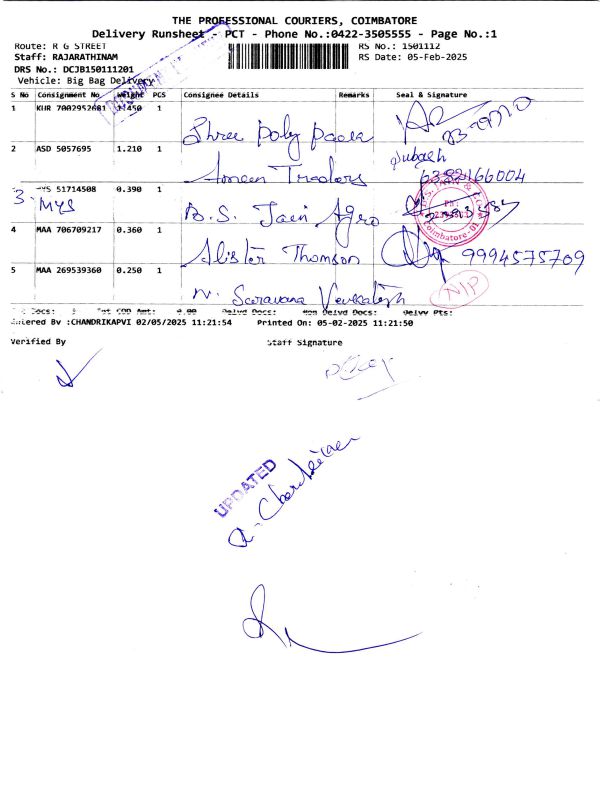 THE PROFESSIONAL COURIERS, COIMBATORE
Delivery Runsheet - PCT - Phone No.:0422-3505555 - Page No.:1
Route: R G STREET RS No.: 1501112
Staff: RAJARATHINAM RS Date: 05-Feb-2025
DRS No.: DCJB150111201
Vehicle: Big Bag Delivery
S No Consignment No Weight PCS Consignee Details Remarks Seal & Signature
1 KUR 7002952681 1.450 1 Shree Poly Pack
2 ASD 5057695 1.210 1 Ameen Traders Subash 6382166004
3 MYS 51714508 0.390 1 B. S. Jain Agro
3 MYS
4 MAA 706709217 0.360 1 Alister Thomson 9994575709
5 MAA 269539360 0.250 1 N. Saravana Venkatesh N/P
Docs: Tot COD Amt: 0.00 Delvd Docs: Non Delvd Docs: Delvy Pts:
Entered By :CHANDRIKAPVI 02/05/2025 11:21:54 Printed On: 05-02-2025 11:21:50
Verified By Staff Signature
UPDATED